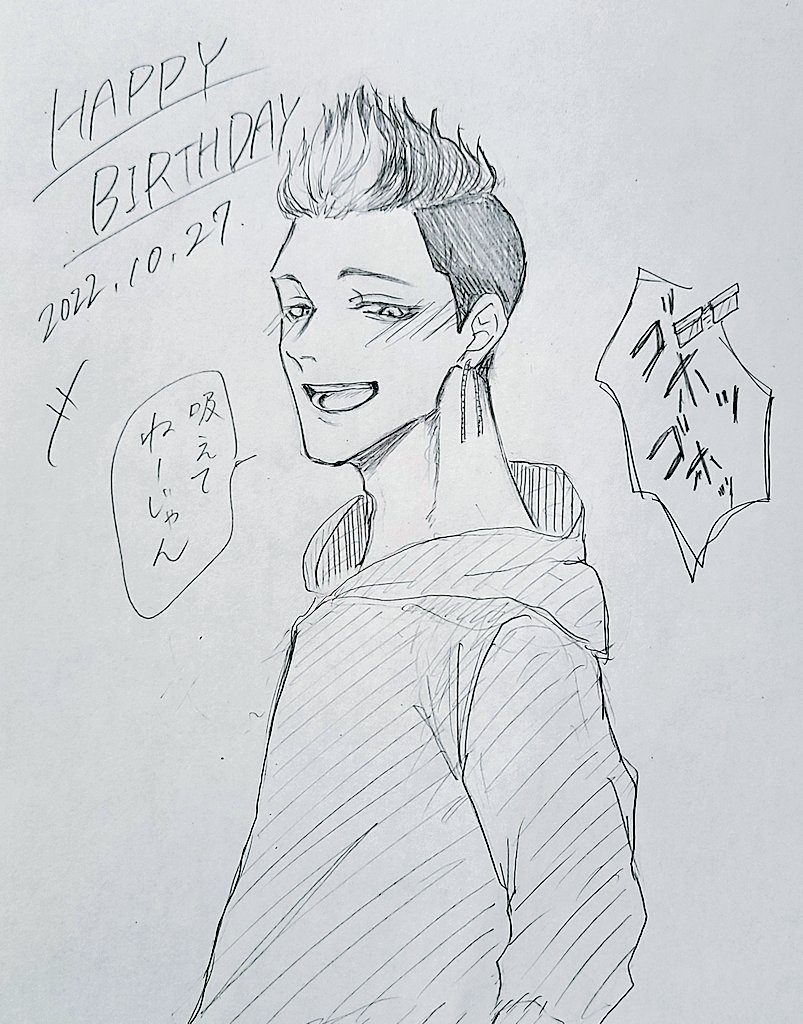 HAPPY
BIRTHDAY
2022.10.27.
吸えて
ねーじゃん
ゴホッ
ゴホッ